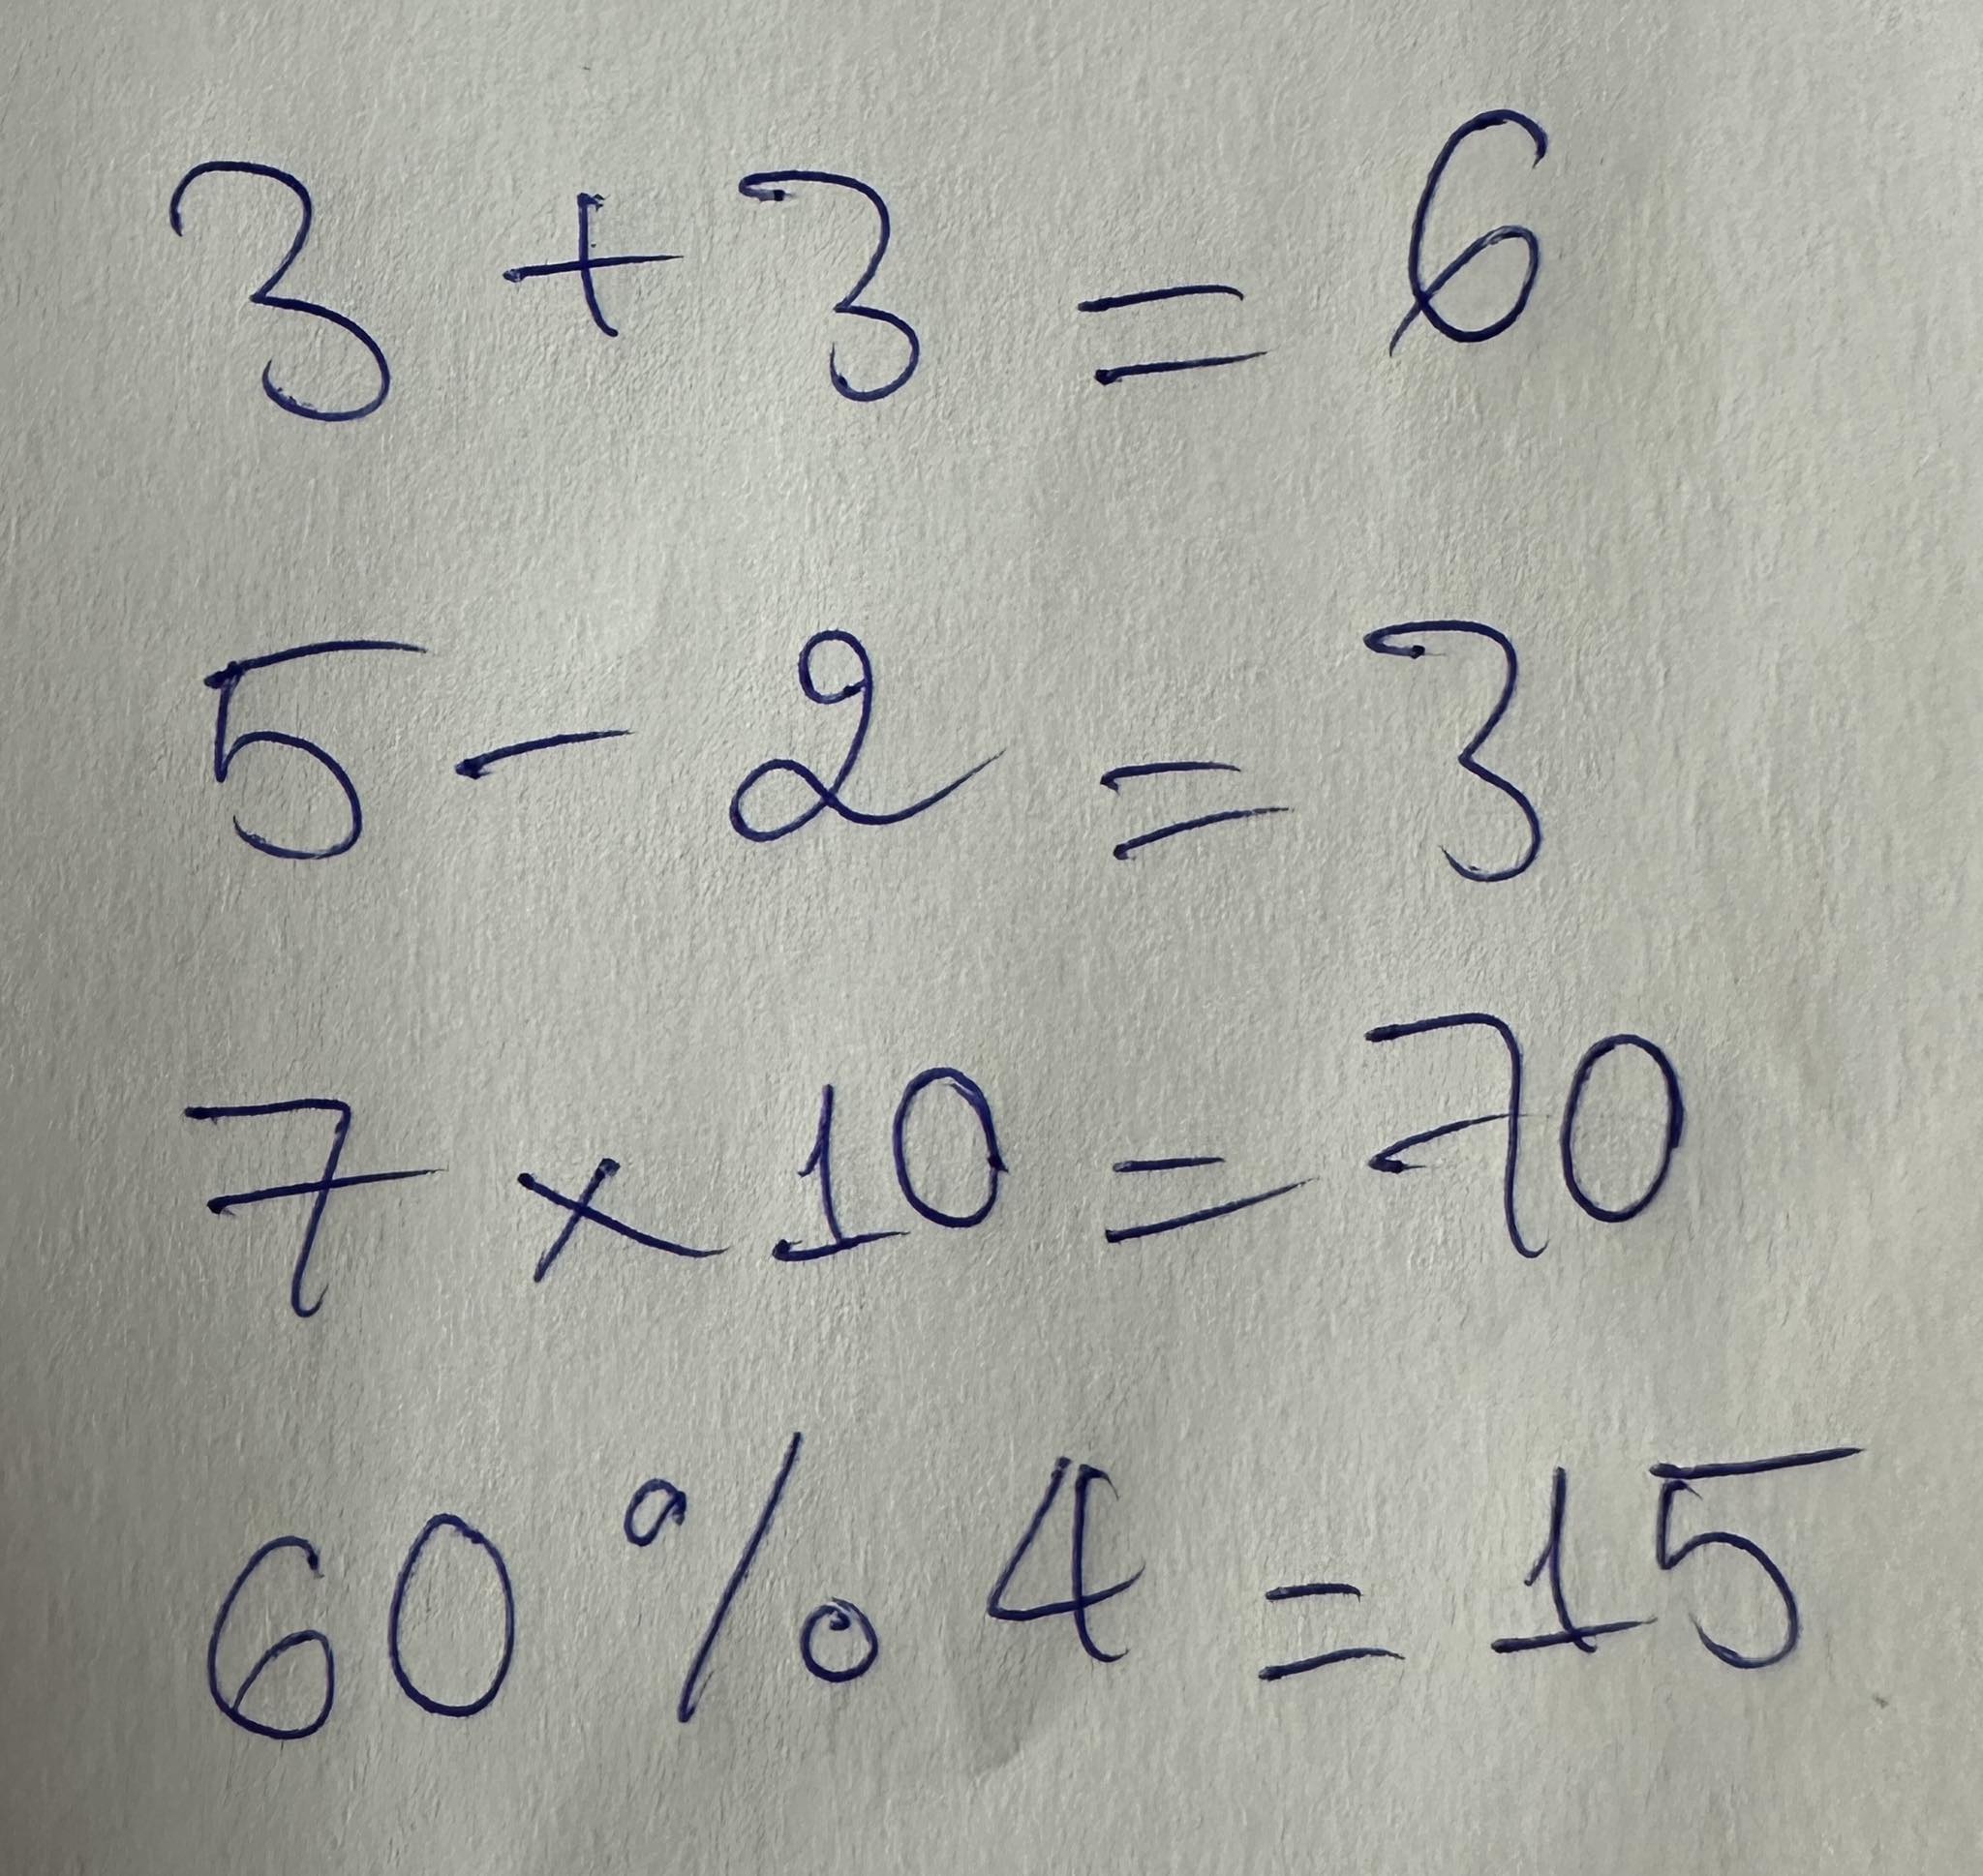 3 + 3 = 6
5 - 2 = 3
7 × 10 = 70
60 % 4 = 15